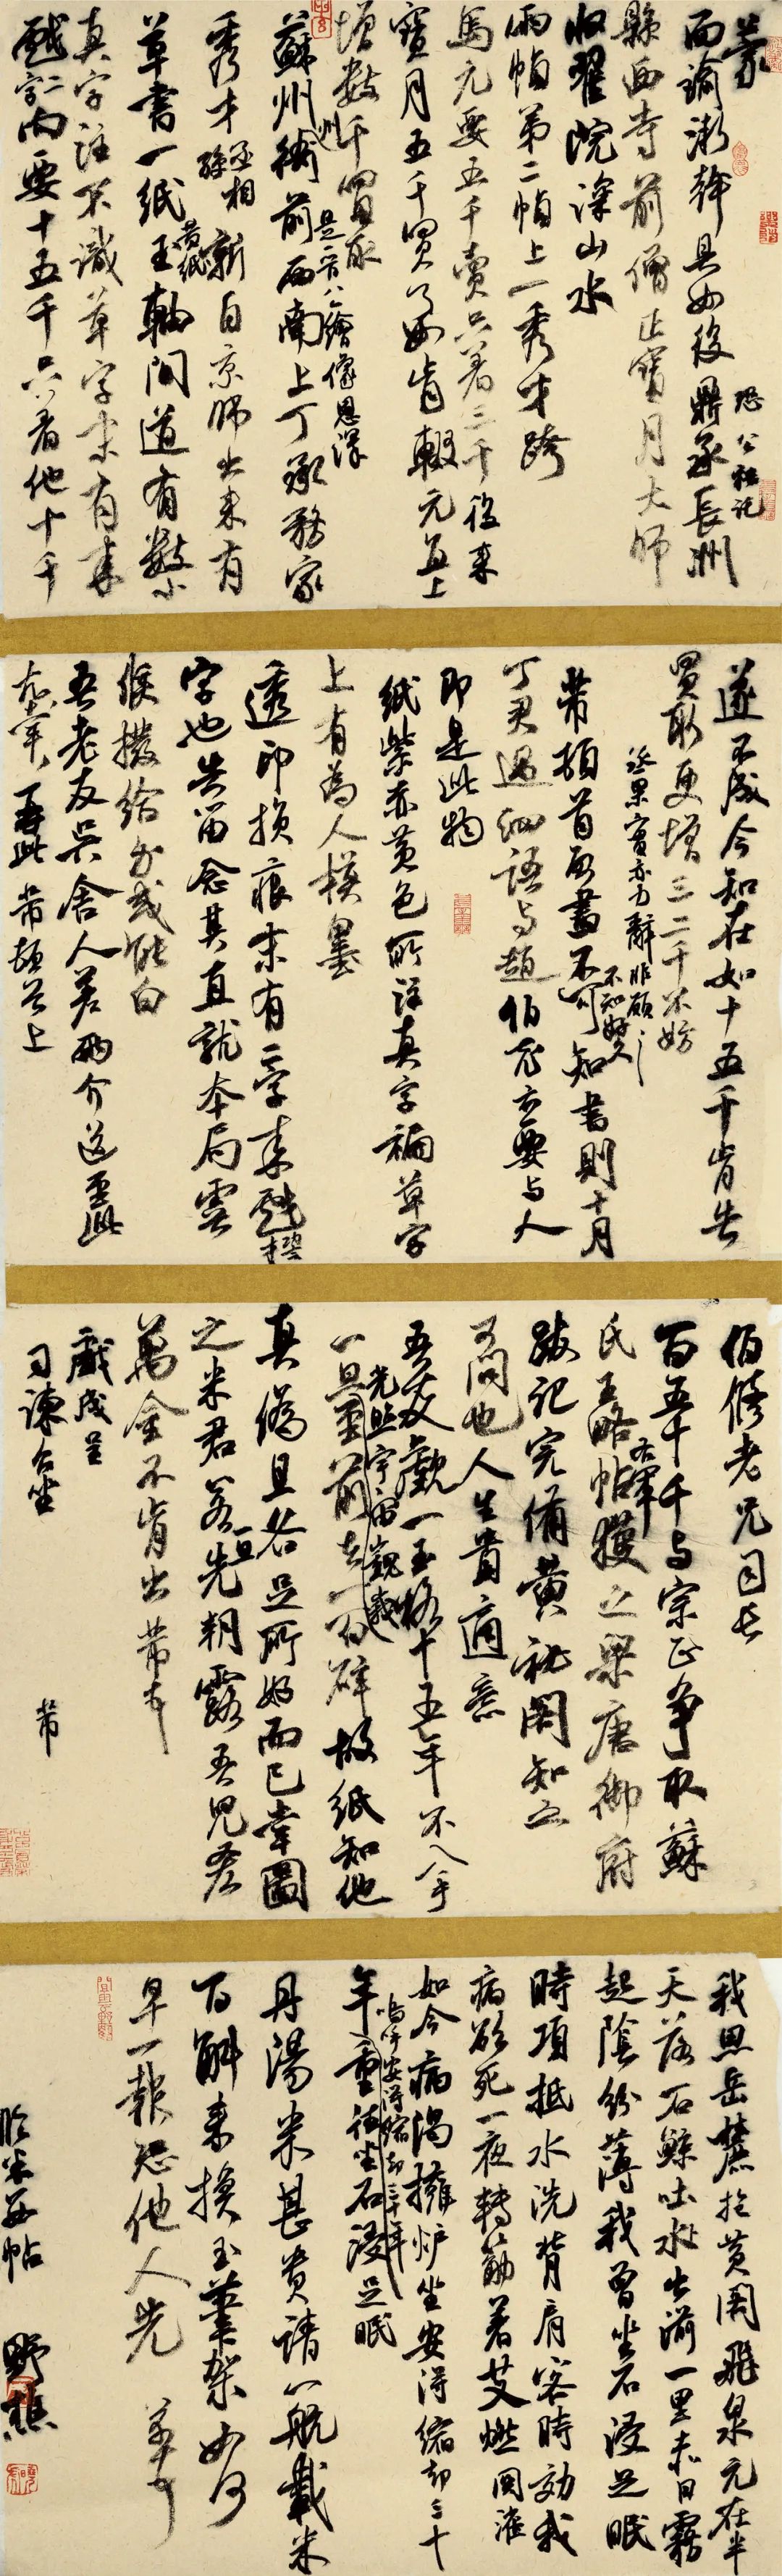 蒙
面諭浙幹具如後
恐公祖託
鼎承長洲
縣西寺前僧正寶月大師
收翟院深山水
兩幀第二幀上一秀才跨
馬元要五千賣只著三千後來
寶月五千買了如肯輟元直上
增數千買取
蘇州衙前西南上丁承務家
秀才
丞相孫
新自京師出來有
草書一紙
黃紙
玉軸間道有數小
真字注不識草字末有來
戲二字內要十五千只着他十千
遂不成今知在如十五千肯告
買取更增三二千不妨
芾頓首
丁君遇細語與趙伯充云要與人
即是此物
紙紫赤黃色所注真字褊草字
上有為人模墨
透印損痕末有二字來戲才襻
字也告留念其直就本局虞
候撥給分或能白
吾老友吳舍人差兩介送至此
尤幸再此芾頓首上
伯修老兄司長
百五十千與宗正爭取蘇
氏王略帖
右軍
獲之梁唐御府
跋記完備黃祕閣知之
可問也人生貴適意
吾友覷一玉格十五年不入手
一旦
光照宇宙巍峩
至前去一百碎故紙知他
真偽且各足所好而已幸圖
之米君若
一旦
先朝露吾兒吝
萬金不肯出芾書
戲成呈
司諫台坐
芾
我思岳麓抱黃閣飛泉元在半
天落石鯨吐水出湔一里赤日霧
起陰紛薄我曾坐石浸足眠
時項抵水洗背肩客時效我
病欲死一夜轉筋著艾燃關灌
如今病渴擁爐坐安得縮卻三十
年
嗚呼安得縮卻三十年
重往坐石浸足眠
丹陽米甚貴請一航載米
百斛來換玉筆架如何
早一報恐他人先 芾書
臨米芾帖 野樵